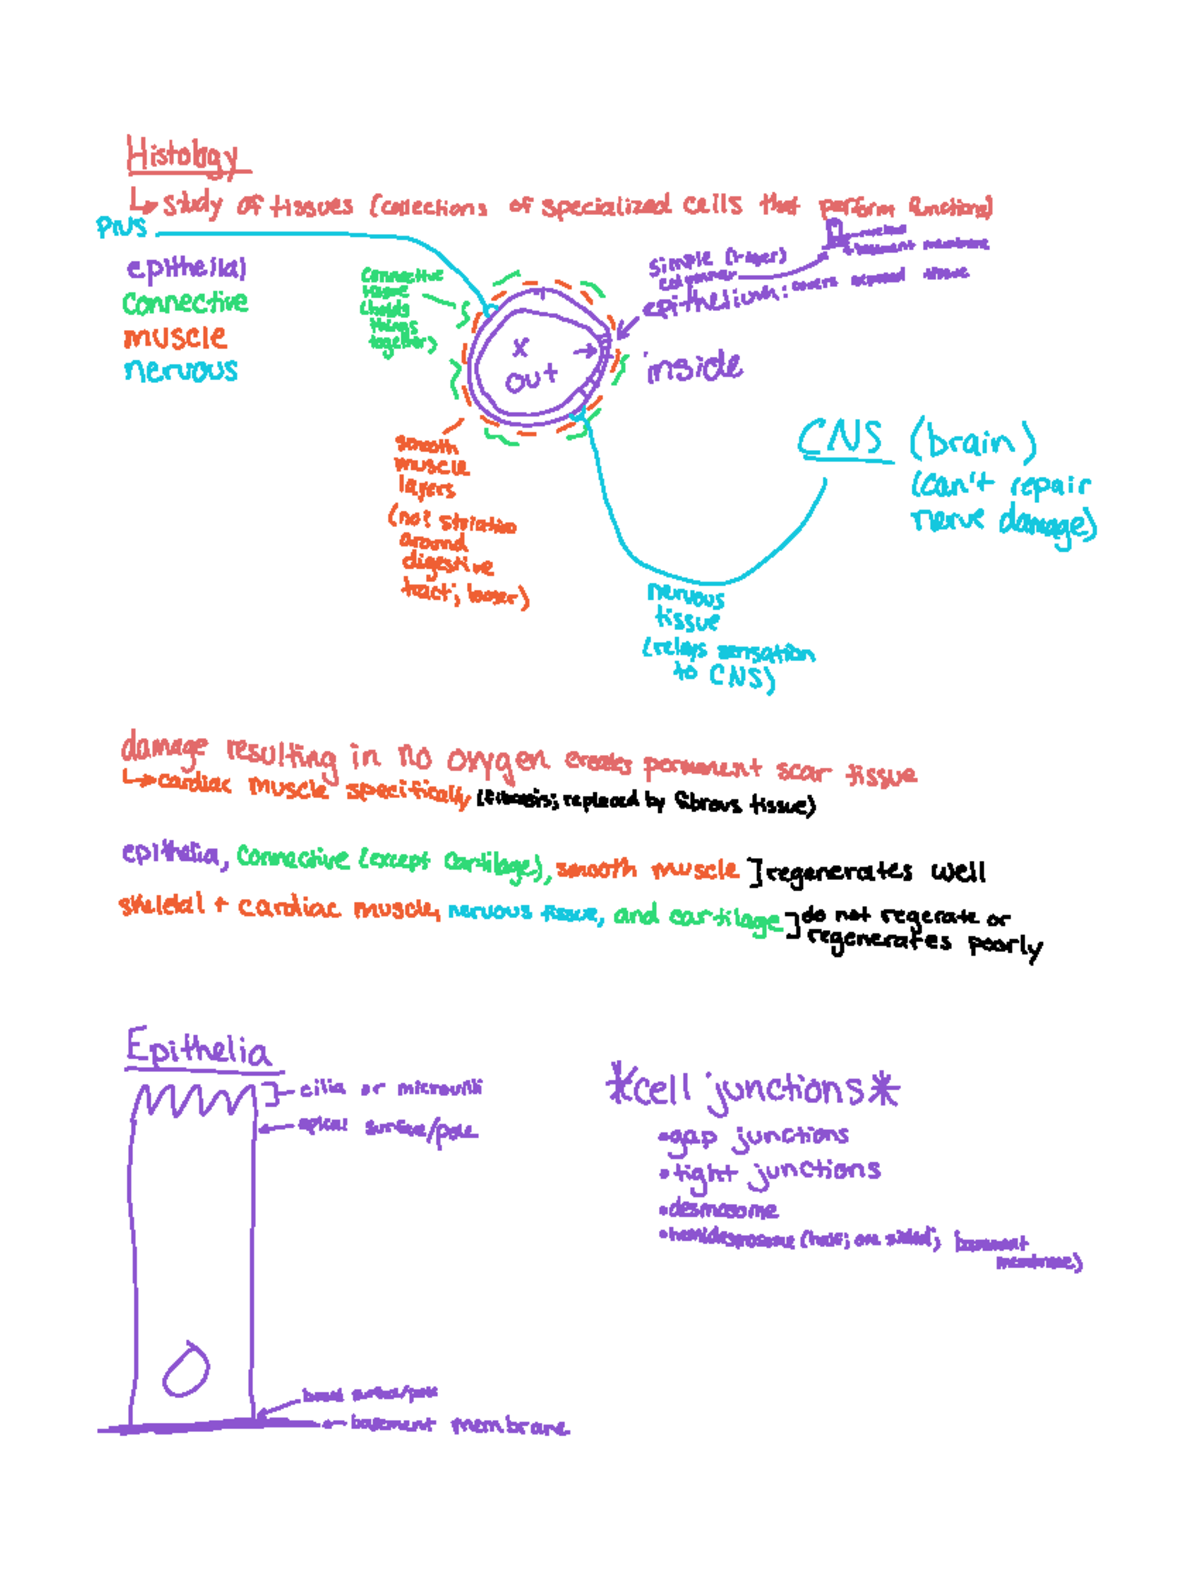 Histology
↳ study of tissues (collections of specialized cells that perform functions)
PNS
epithelial
connective
muscle
nervous
connective
tissue
(holds
things
together)
simple (1-layer)
columnar
nucleus
basement membrane
epithelium: covers exposed tissue
X
out
inside
smooth
muscle
layers
(not striation
around
digestive
tract; looser)
CNS (brain)
(can't repair
nerve damage)
nervous
tissue
(relays sensation
to CNS)
damage resulting in no oxygen creates permanent scar tissue
↳ cardiac muscle specifically (fibrosis; replaced by fibrous tissue)
epithelia, connective (except cartilage), smooth muscle ] regenerates well
skeletal + cardiac muscle, nervous tissue, and cartilage ] do not regerate or
regenerates poorly
Epithelia
cilia or microvilli
apical surface/pole
basal surface/pole
basement membrane
*cell junctions*
•gap junctions
•tight junctions
•desmosome
•hemidesmosome (half; one sided; basement
membrane)